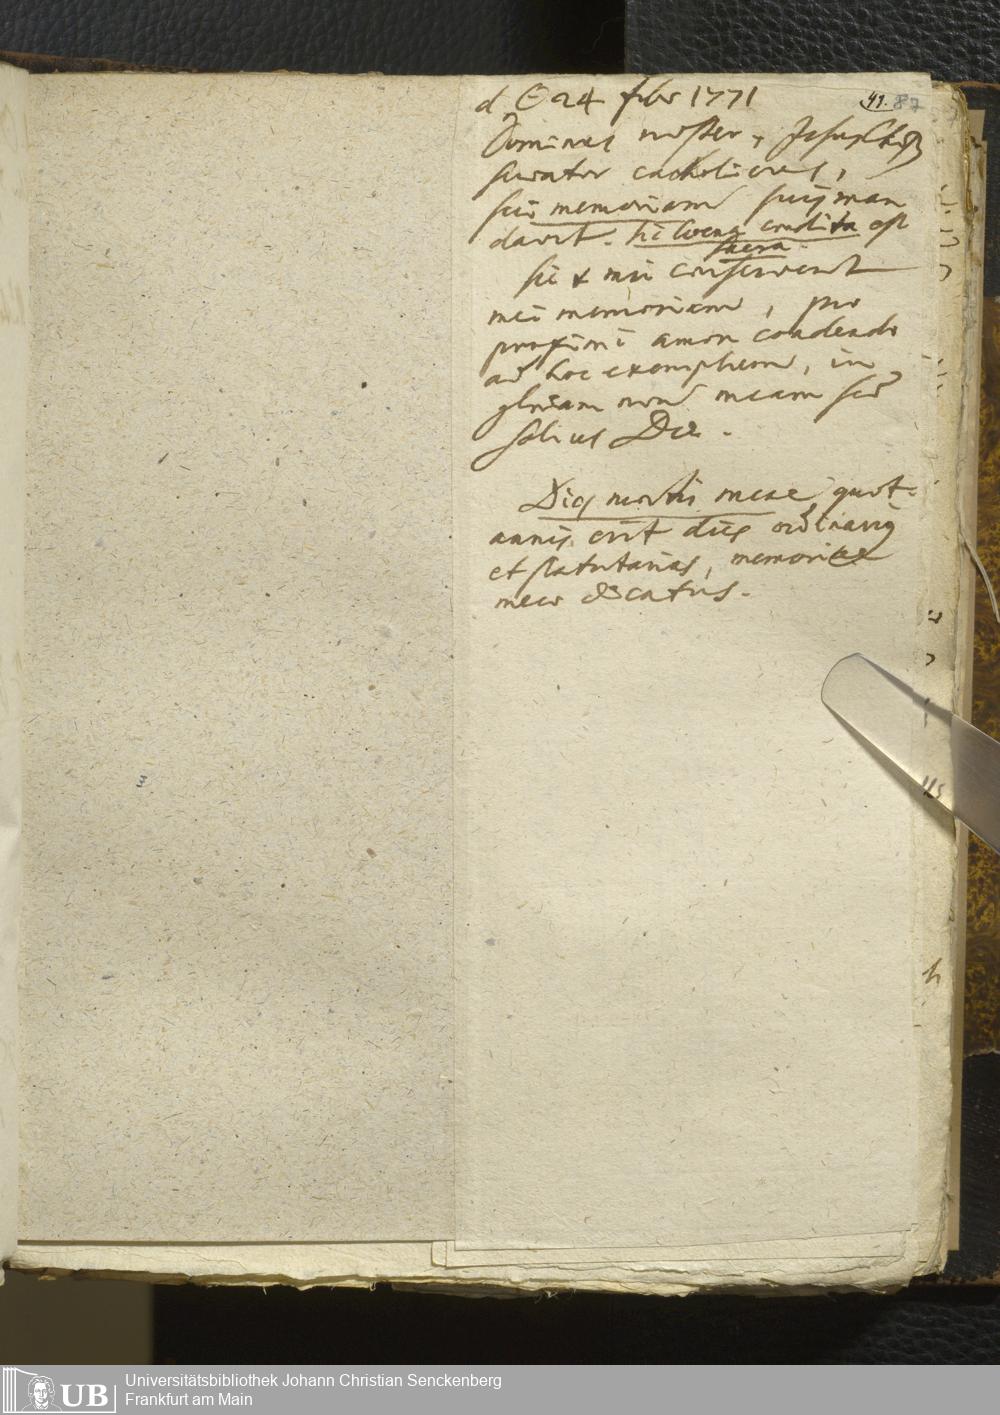 d. ☉ 24 febr 1771
41. 87
Dominus noster, Jesus Christ
curator catholicus,
sui memoriam suis man
davit. sic coena condita est
sacra
sic & mei conservent
mei memoriam, pro
proximi amore condendo
ad hoc exemplum, in
gloriam non meam sed
solius Dei.
Dies mortis meae quot-
annis erit dies ordinariꝰ
et statutarius, memoriae
meae dicatus.
UB
Universitätsbibliothek Johann Christian Senckenberg
Frankfurt am Main